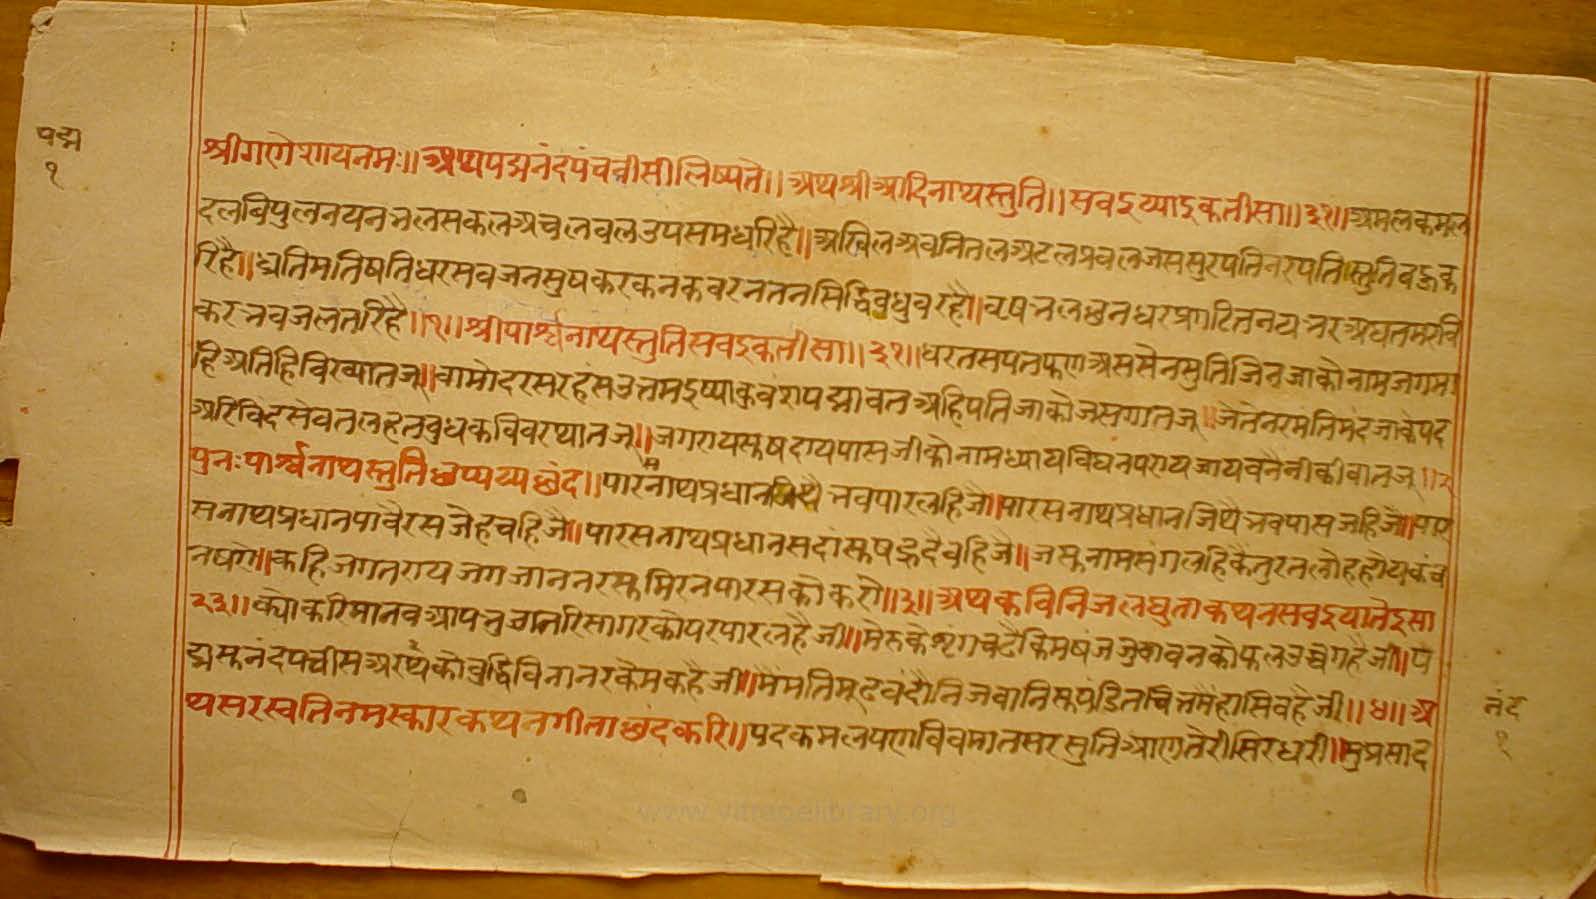 पद्म
१
श्रीगणेशायनमः॥अथपद्मनंदपंचवीसीलिष्यते॥अथश्रीआदिनाथस्तुति॥सवइय्याइकतीसा॥३१॥अमलकमल
दलबिपुलनयनभलसकलअचलबलउपसमधरिहै॥अखिलअवनितलअटलप्रबलजससुरपतिनरपतिस्तुतिबहुक
रिहै॥धृतिमतिषतिधरसबजनसुषकरकनकवरनतनसिद्धिबुधुवरहै॥वृषभलछुनधरप्रगटितनयभरअघतमरवि
करभवजलतरिहै॥१॥श्रीपार्श्वनाथस्तुतिसवइकतीसा॥३१॥धरतसपतफणअससेनसुतिजिनजाकोनामजगमा
हिअतिहिविख्यातजू॥वामोदरसरहंसउत्तमइष्याकुवंशपद्मावतअहिपतिजाकोजसगातजू॥जेतेनरमतिमंदजाकेपद
अरिविंदसेवतलहतबुधकविवरथातजू॥जगरायसुषदायपासजीकोनामध्यायविघनपरायजायबनैनीकीबातजू॥२
पुनःपार्श्वनाथस्तुतिछप्यय्यछंद॥पारसनाथप्रधान भवपारलहिजै॥पारसनाथप्रधानजिपैभवपासजहिजै॥पार
सनाथप्रधानपावैरसजेहचहिजै॥पारसनाथप्रधानसदांसुष देवहिजै॥जसुनामसंगलहिकैतुरतलोहहोयकंच
नषरो॥कहिजगतरायजगजाननरसुमिरनपारसकोकरो॥३॥अथकविनिजलघुताकथनसवइयातेइसा
२३॥क्योकरिमानवआपनुजातरिसागरकोपरपारलहैजी॥मेरुकेशृंगचढैकिमषंजजुबावनकोफलउच्चगहैजी॥प
द्मसुनंदपचीसअरथकोबुद्धिविनानरकेमकहैजी॥मैमतिमूढवंदौनिजबानिसुपंडितचित्तमैहासिवहैजी॥४॥अ
थसरस्वतिनमस्कारकथनगीताछंदकरि॥पदकमलपणविवमातसरसुतिआणतेरीसिरधरी॥सुप्रसाद
नंद
१
www.vitragelibrary.org